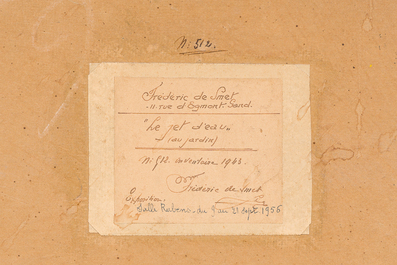 N: 512.
Frédéric de Smet
11 rue d'Egmont Gand.
"Le jet d'eau"
(au jardin)
N: 512. inventaire 1943
Frédéric de Smet
Exposition:
Salle Rubens, du 9 au 21 sept 1956